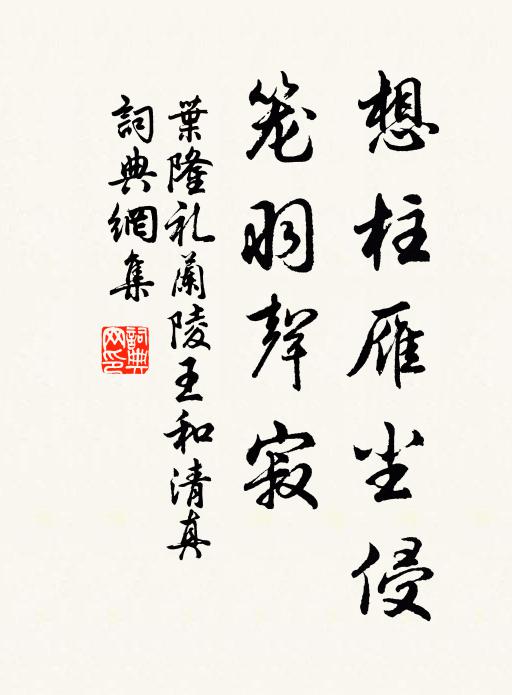 想柱雁尘侵
笼羽聲寂
葉隆礼蘭陵王和清真
詞典網集
詞典网印